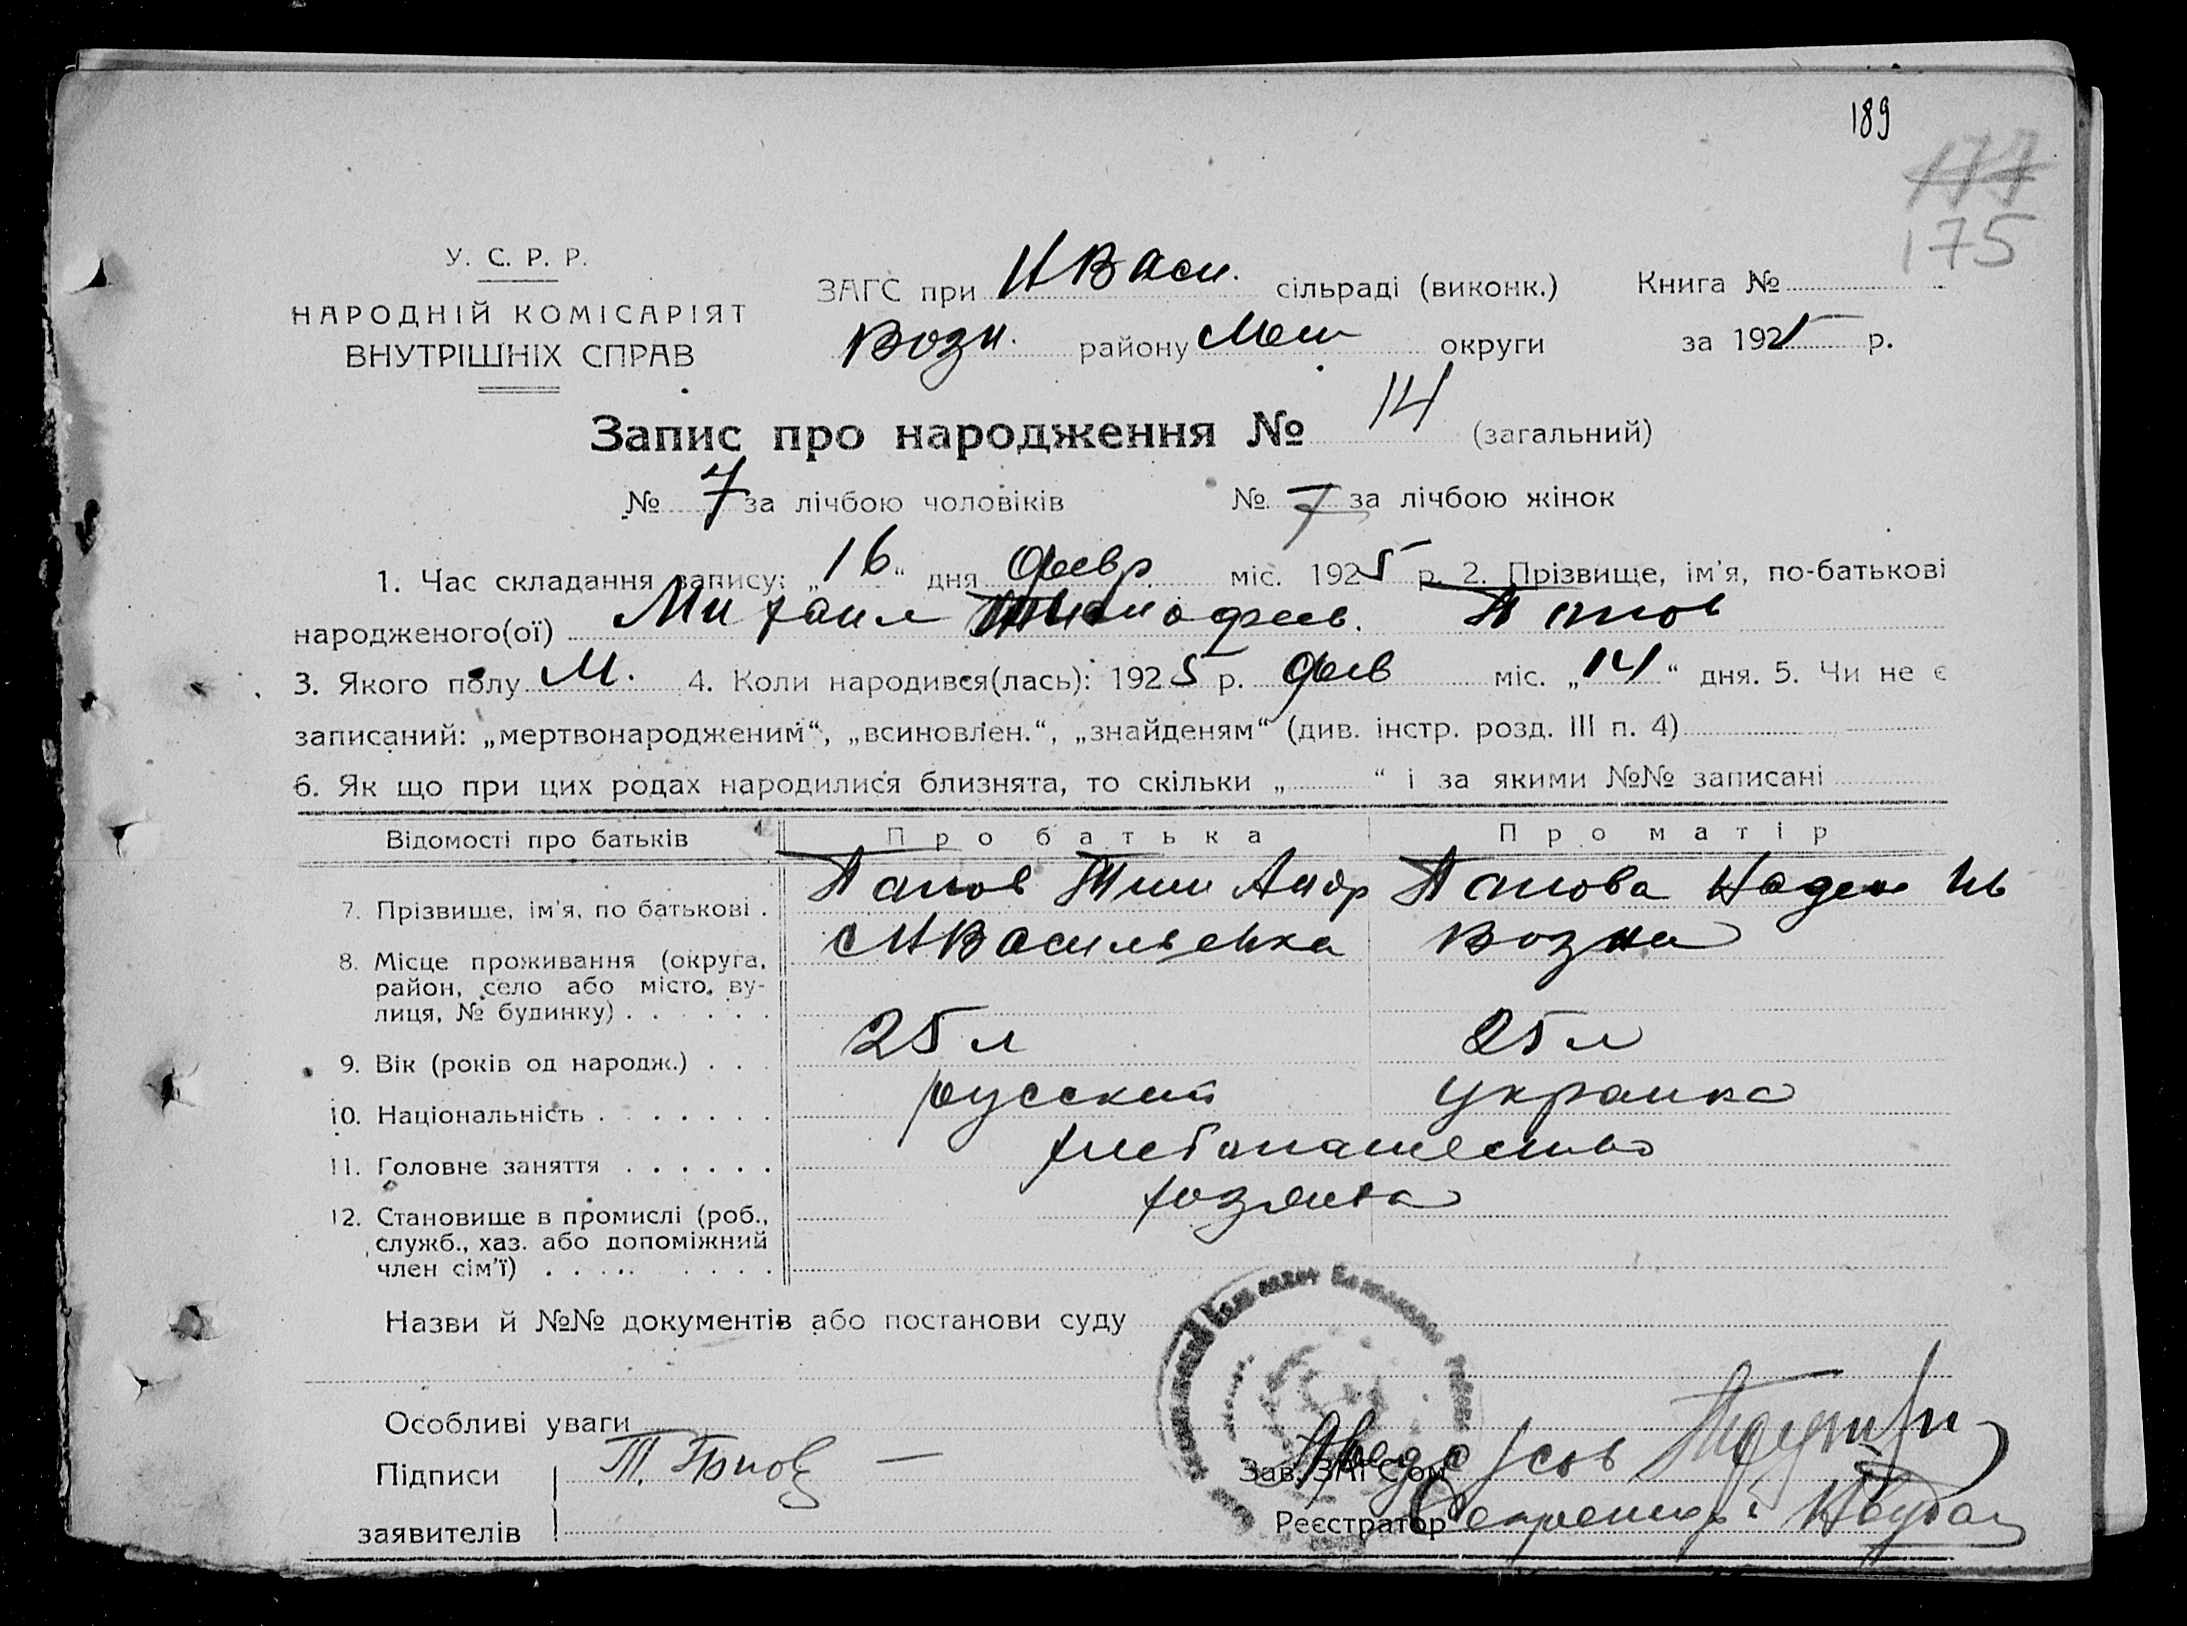 189
177
175
У. С. Р. Р.
НАРОДНІЙ КОМІСАРІЯТ
ВНУТРІШНІХ СПРАВ
ЗАГС при НВаси. сільраді (виконк.) Книга №
Возн. району Мел округи за 1925 р.
Запис про народження № 14 (загальний)
№ 7 за лічбою чоловіків № 7 за лічбою жінок
1. Час складання запису: „16“ дня февр міс. 1925 р. 2. Прізвище, ім'я, по-батькові
народженого(ої) Михаил Тимофеев. Папов
3. Якого полу М. 4. Коли народився(лась): 1925 р. фев міс. „14“ дня. 5. Чи не є
записаний: „мертвонародженим“, „всиновлен.“, „знайденям“ (див. інстр. розд. III п. 4)
6. Як що при цих родах народилися близнята, то скільки „ “ і за якими №№ записані
Відомості про батьків Про батька Про матір
7. Прізвище, ім'я, по батькові . Папов Тим Андр Папова Надеж Ив
8. Місце проживання (округа, район, село або місто, ву-лиця, № будинку) . . . . . . с НВасильевка Возна
9. Вік (років од народж.) . . . 25 л 25 л
10. Національність . . . . . . . русский украинка
11. Головне заняття . . . . . . хлебопашество
12. Становище в промислі (роб., служб., хаз. або допоміжний член сім'ї) . . . . . . . . хозяева
Назви й №№ документів або постанови суду
Особливі уваги
Підписи Т. Папов
заявителів
Зав. ЗАГС'ом Предс
Реєстратор Секретарь